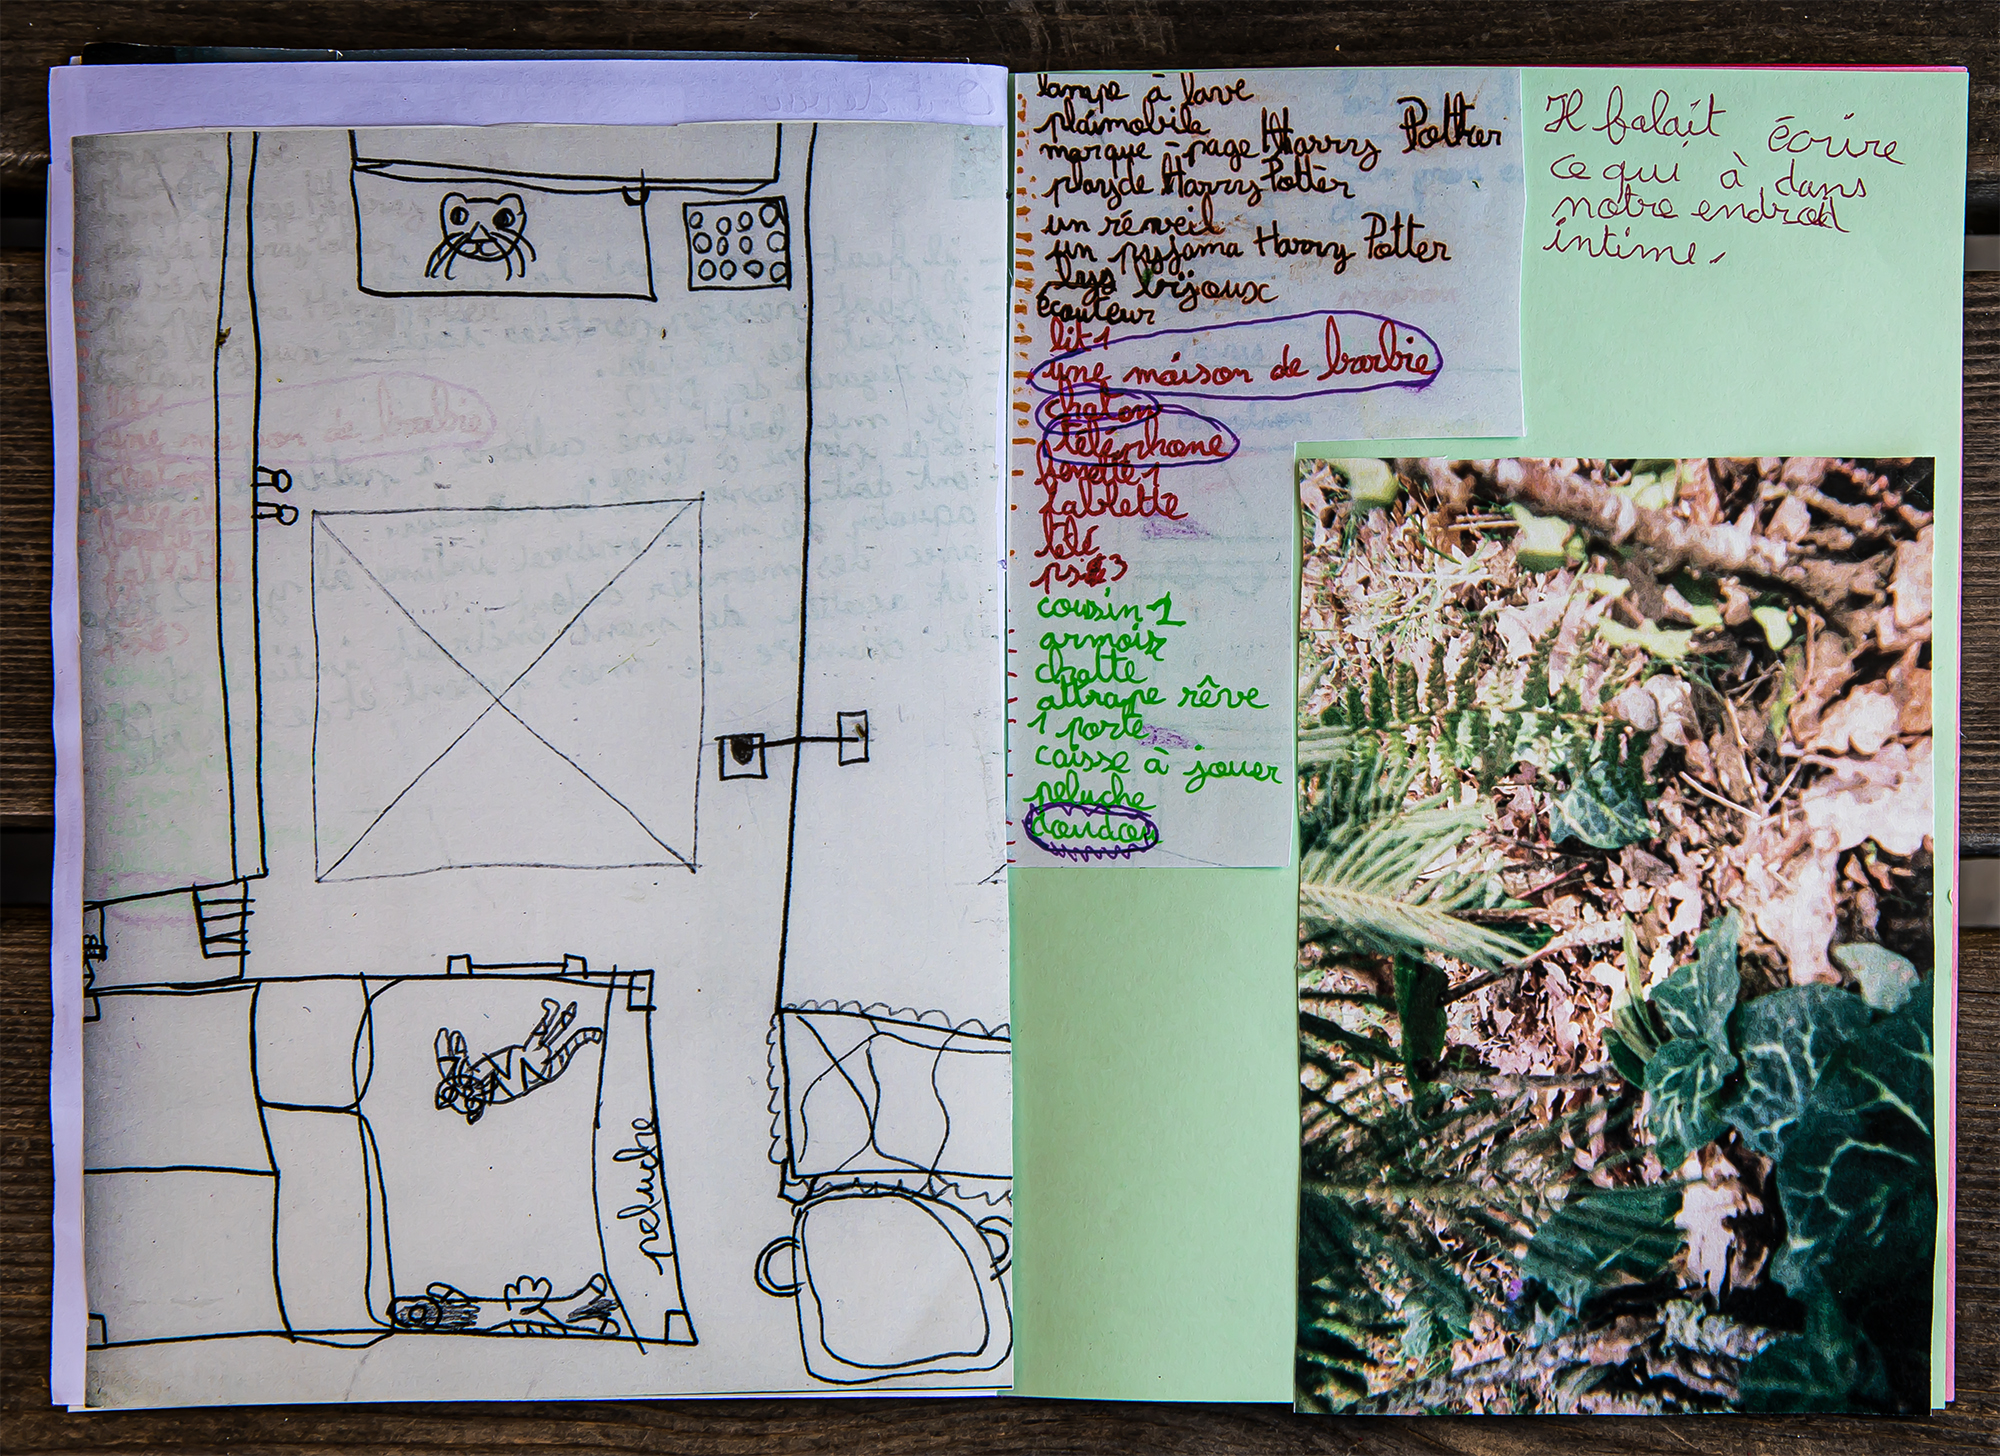 peluche
lampe à lave
plaimobile
marque-page Harry Potter
Harry Potter
un réveil
un pyjama Harry Potter
bijoux
écouteur
lit 1
une maison de barbie
chaton
téléphone
tablette
télé
cousin 1
armoir
chatte
attrape rêve
1 porte
caisse à jouer
peluche
doudou
Il falait écrire
ce qui à dans
notre endroit
intime.